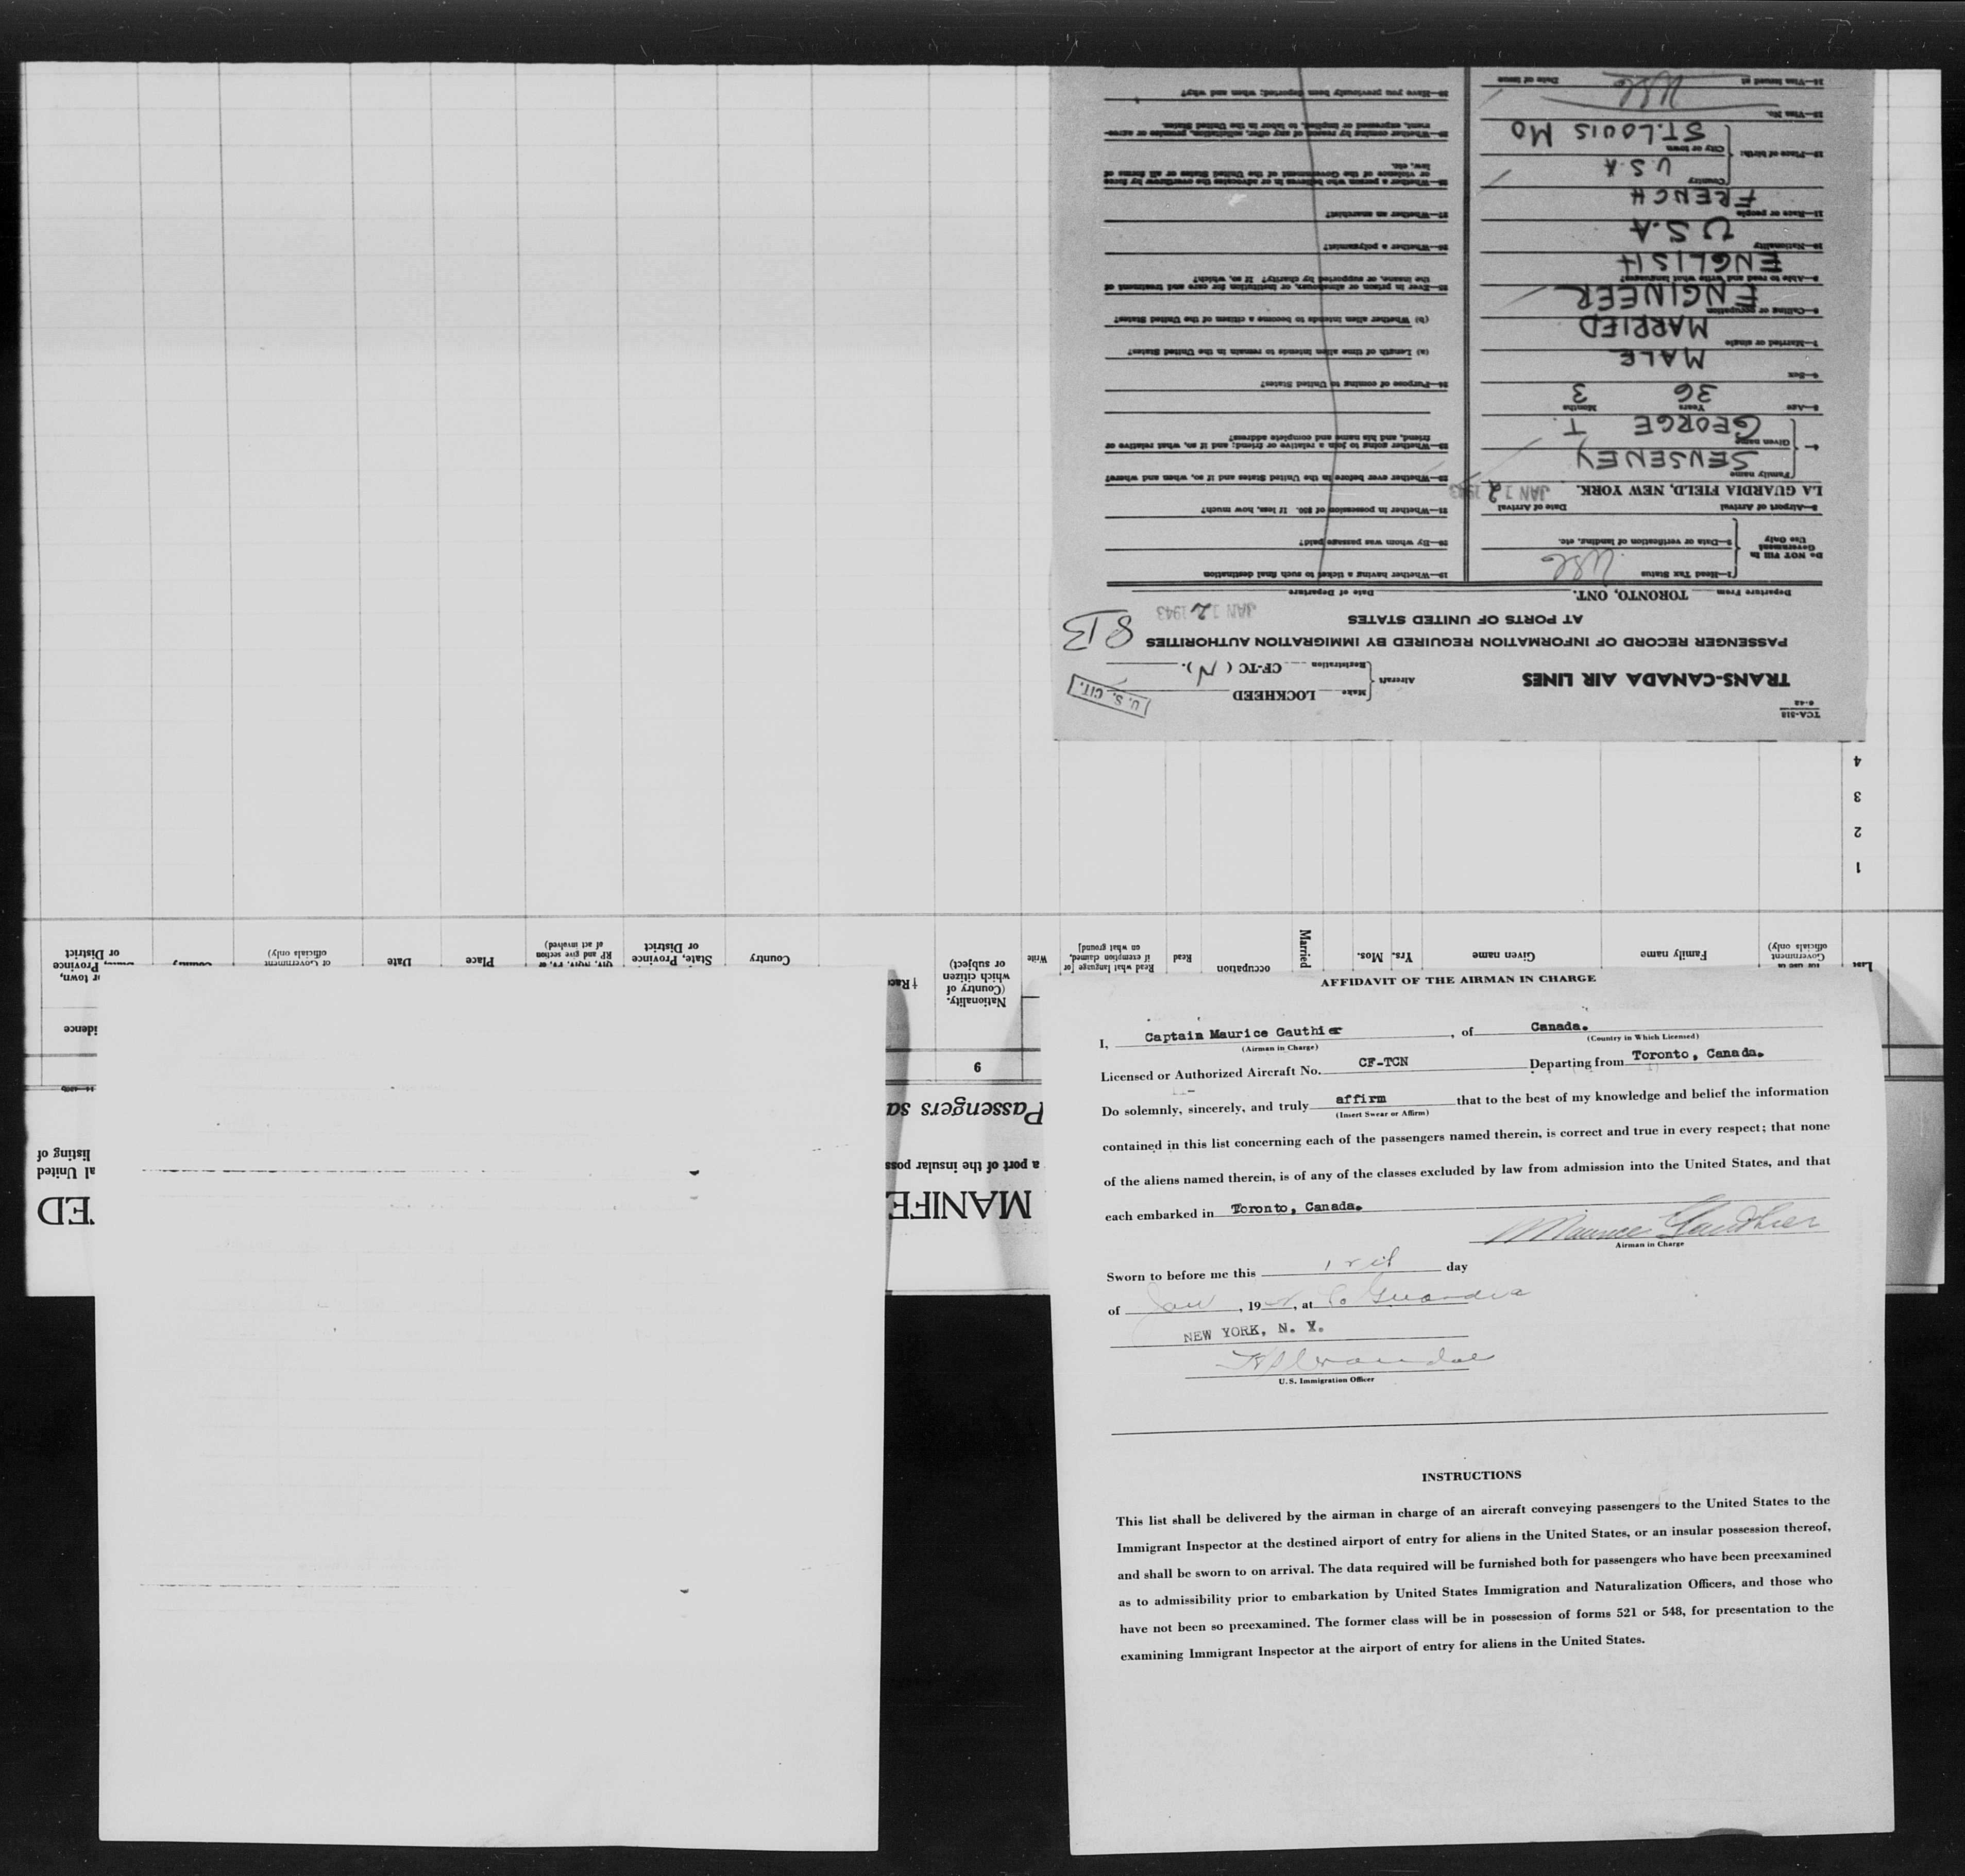 TCA-318
6-42
TRANS-CANADA AIR LINES
Aircraft { Make LOCKHEED
Registration CF-TC ( N ).
U. S. CIT.
PASSENGER RECORD OF INFORMATION REQUIRED BY IMMIGRATION AUTHORITIES
AT PORTS OF UNITED STATES
8 13
Departure From TORONTO, ONT. Date of Departure JAN 12 1943
Do NOT Fill In
Government
Use Only
1—Head Tax Status USC
2—Data or verification of landing, etc.
3—Airport of Arrival Date of Arrival
LA GUARDIA FIELD, NEW YORK. JAN 12 1943
4— Family name SENSENEY
Given name GEORGE T.
5—Age Years 36 Months 3
6—Sex MALE
7—Married or single MARRIED
8—Calling or occupation ENGINEER
9—Able to read and write what languages? ENGLISH
10—Nationality U.S.A
11—Race or people FRENCH
12—Place of birth: Country U.S.A
City or town ST. LOUIS MO
13—Visa No.
14—Visa issued at Date of issue
USC
19—Whether having a ticket to such final destination
20—By whom was passage paid?
21—Whether in possession of $50. If less, how much?
22—Whether ever before in the United States and if so, when and where?
23—Whether going to join a relative or friend; and if so, what relative or
friend, and his name and complete address?
24—Purpose of coming to United States?
(a) Length of time alien intends to remain in the United States?
(b) Whether alien intends to become a citizen of the United States?
25—Ever in prison or almshouse, or institution for care and treatment of
the insane, or supported by charity? If so, which?
26—Whether a polygamist?
27—Whether an anarchist?
28—Whether a person who believes in or advocates the overthrow by force
or violence of the Government of the United States or all forms of
law, etc.
29—Whether coming by reason of any offer, solicitation, promise or agree-
ment, expressed or implied, to labor in the United States.
30—Have you previously been deported; when and why?
ED
MANIFE
al United
a port of the insular poss
listing of
Passengers sa
6
idence
Government
officials only)
Family name
Given name
Yrs.
Mos.
Married
occupation
Read
Read what language [or
if exemption claimed,
on what ground]
Write
Nationality.
(Country of
which citizen
or subject)
†Race
Country
State, Province
or District
RP and give section
of act involved)
Place
Date
of Government
officials only)
Province
or District
1
2
3
4
AFFIDAVIT OF THE AIRMAN IN CHARGE
I, Captain Maurice Gauthier, of Canada.
(Airman in Charge) (Country in Which Licensed)
Licensed or Authorized Aircraft No. CF-TCN Departing from Toronto, Canada.
Do solemnly, sincerely, and truly affirm that to the best of my knowledge and belief the information
(Insert Swear or Affirm)
contained in this list concerning each of the passengers named therein, is correct and true in every respect; that none
of the aliens named therein, is of any of the classes excluded by law from admission into the United States, and that
each embarked in Toronto, Canada.
Maurice Gauthier
Airman in Charge
Sworn to before me this day
of Jan, 19 , at La Guardia
NEW YORK, N. Y.
U. S. Immigration Officer
INSTRUCTIONS
This list shall be delivered by the airman in charge of an aircraft conveying passengers to the United States to the
Immigrant Inspector at the destined airport of entry for aliens in the United States, or an insular possession thereof,
and shall be sworn to on arrival. The data required will be furnished both for passengers who have been preexamined
as to admissibility prior to embarkation by United States Immigration and Naturalization Officers, and those who
have not been so preexamined. The former class will be in possession of forms 521 or 548, for presentation to the
examining Immigrant Inspector at the airport of entry for aliens in the United States.